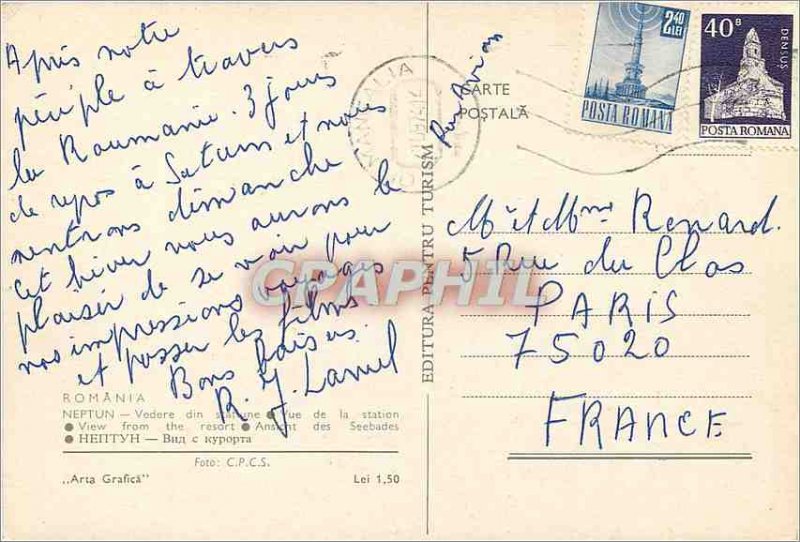 Après notre
périple à travers
la Roumanie. 3 jours
de repos à Saturn et nous
rentrons dimanche
Cet hiver nous aurons le
plaisir de se voir pour
nos impressions voyages
et passer les films
Bons baisers
R. J. Lamel
ROMÂNIA
NEPTUN — Vedere din stațiune ● Vue de la station
● View from the resort ● Ansicht des Seebades
● НЕПТУН — Вид с курорта
Foto: C.P.C.S.
„Arta Grafică” Lei 1,50
EDITURA PENTRU TURISM
MANGALIA
Par Avion
CARTE
POȘTALĂ
2,40
LEI
POSTA ROMANA
40B
DENSUȘ
POSTA ROMANA
Mr et Mme Renard.
5 Rue du Clos
PARIS
75020
FRANCE
CPAPHIL